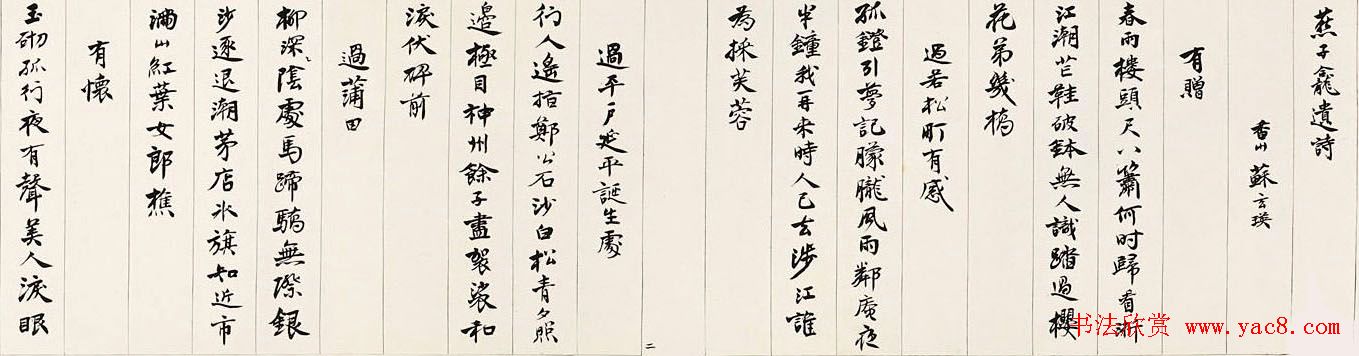 燕子龕遺詩
香山 蘇玄瑛
有贈
春雨樓頭尺八簫何时歸看浙
江潮芒鞋破鉢無人識踏過櫻
花弟幾橋
過若松町有感
孤鐙引夢記朦朧風雨鄰庵夜
半鐘我再来時人已去涉江誰
為採芙蓉
二
過平戶延平誕生處
行人遙指鄭公石沙白松青夕照
邊極目神州餘子盡袈裟和
淚伏碑前
過蒲田
柳深陰處馬蹄驕無際銀
沙逐退潮茅店冰旗知近市
滿山紅葉女郎樵
有懷
玉砌孤行夜有聲美人淚眼
书法欣赏 www.yac8.com